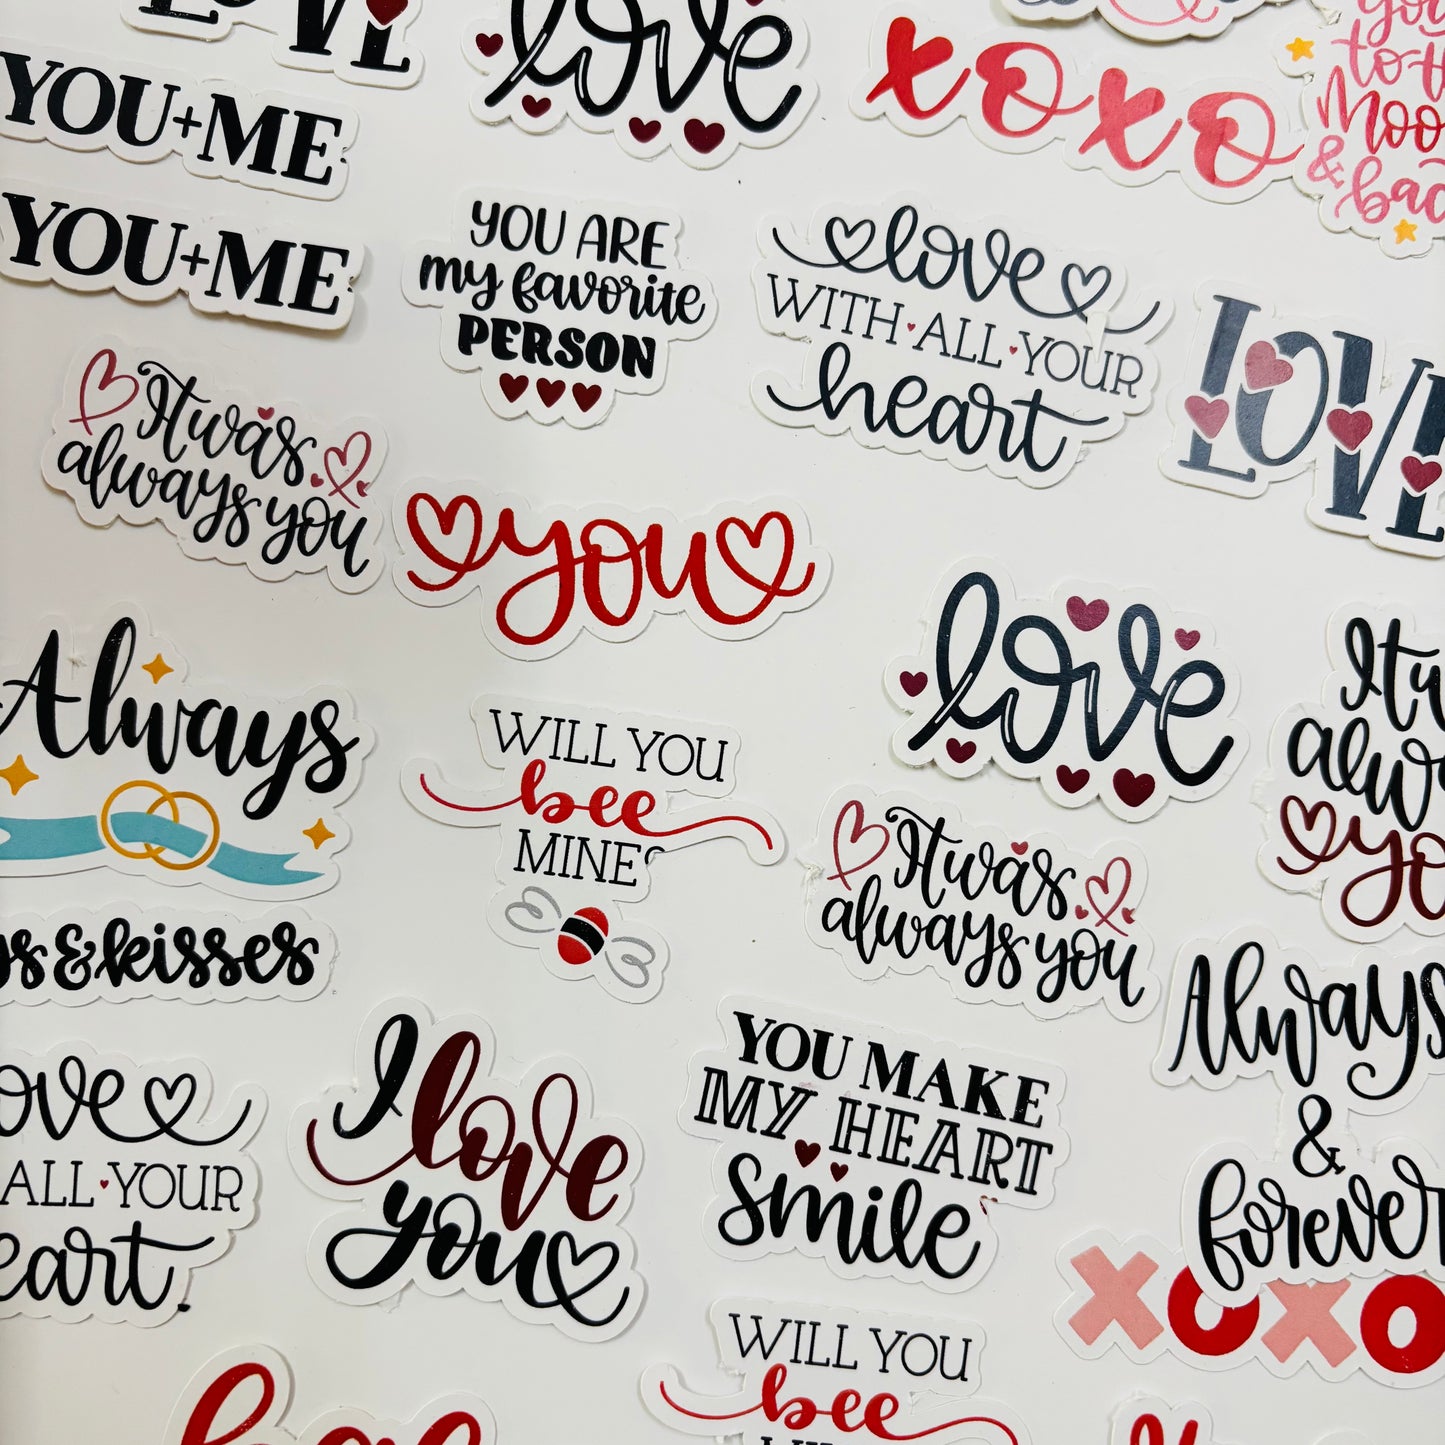 LOVE
love
xoxo
you
to the
Moon
& back
YOU+ME
YOU+ME
YOU ARE
my favorite
PERSON
love
WITH·ALL·YOUR
heart
LOVE
It was
always you
you
Always
WILL YOU
bee
MINE?
love
It was
always you
It was
always
you
&kisses
Always
&
forever
love
ALL·YOUR
heart.
I love
you
YOU MAKE
MY HEART
smile
XOXO
WILL YOU
bee